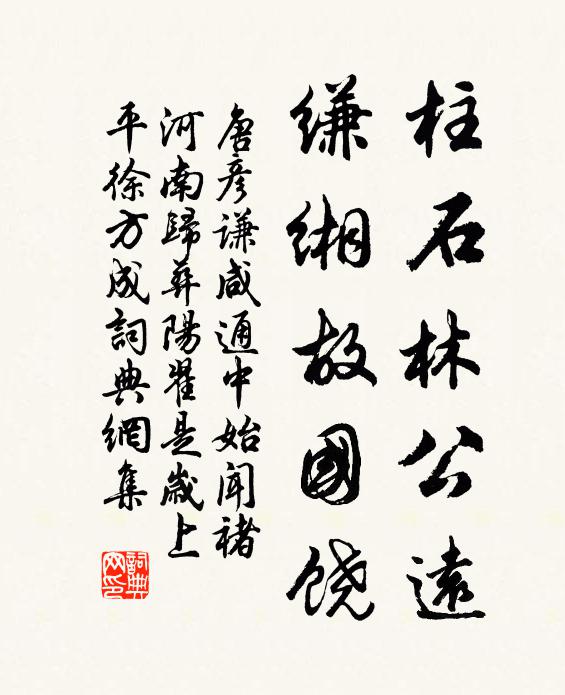 柱石林公遠
縑緗故國饶
唐彥谦咸通中始闻褚
河南歸葬陽翟是歲上
平徐方成詞典網集
詞典網印